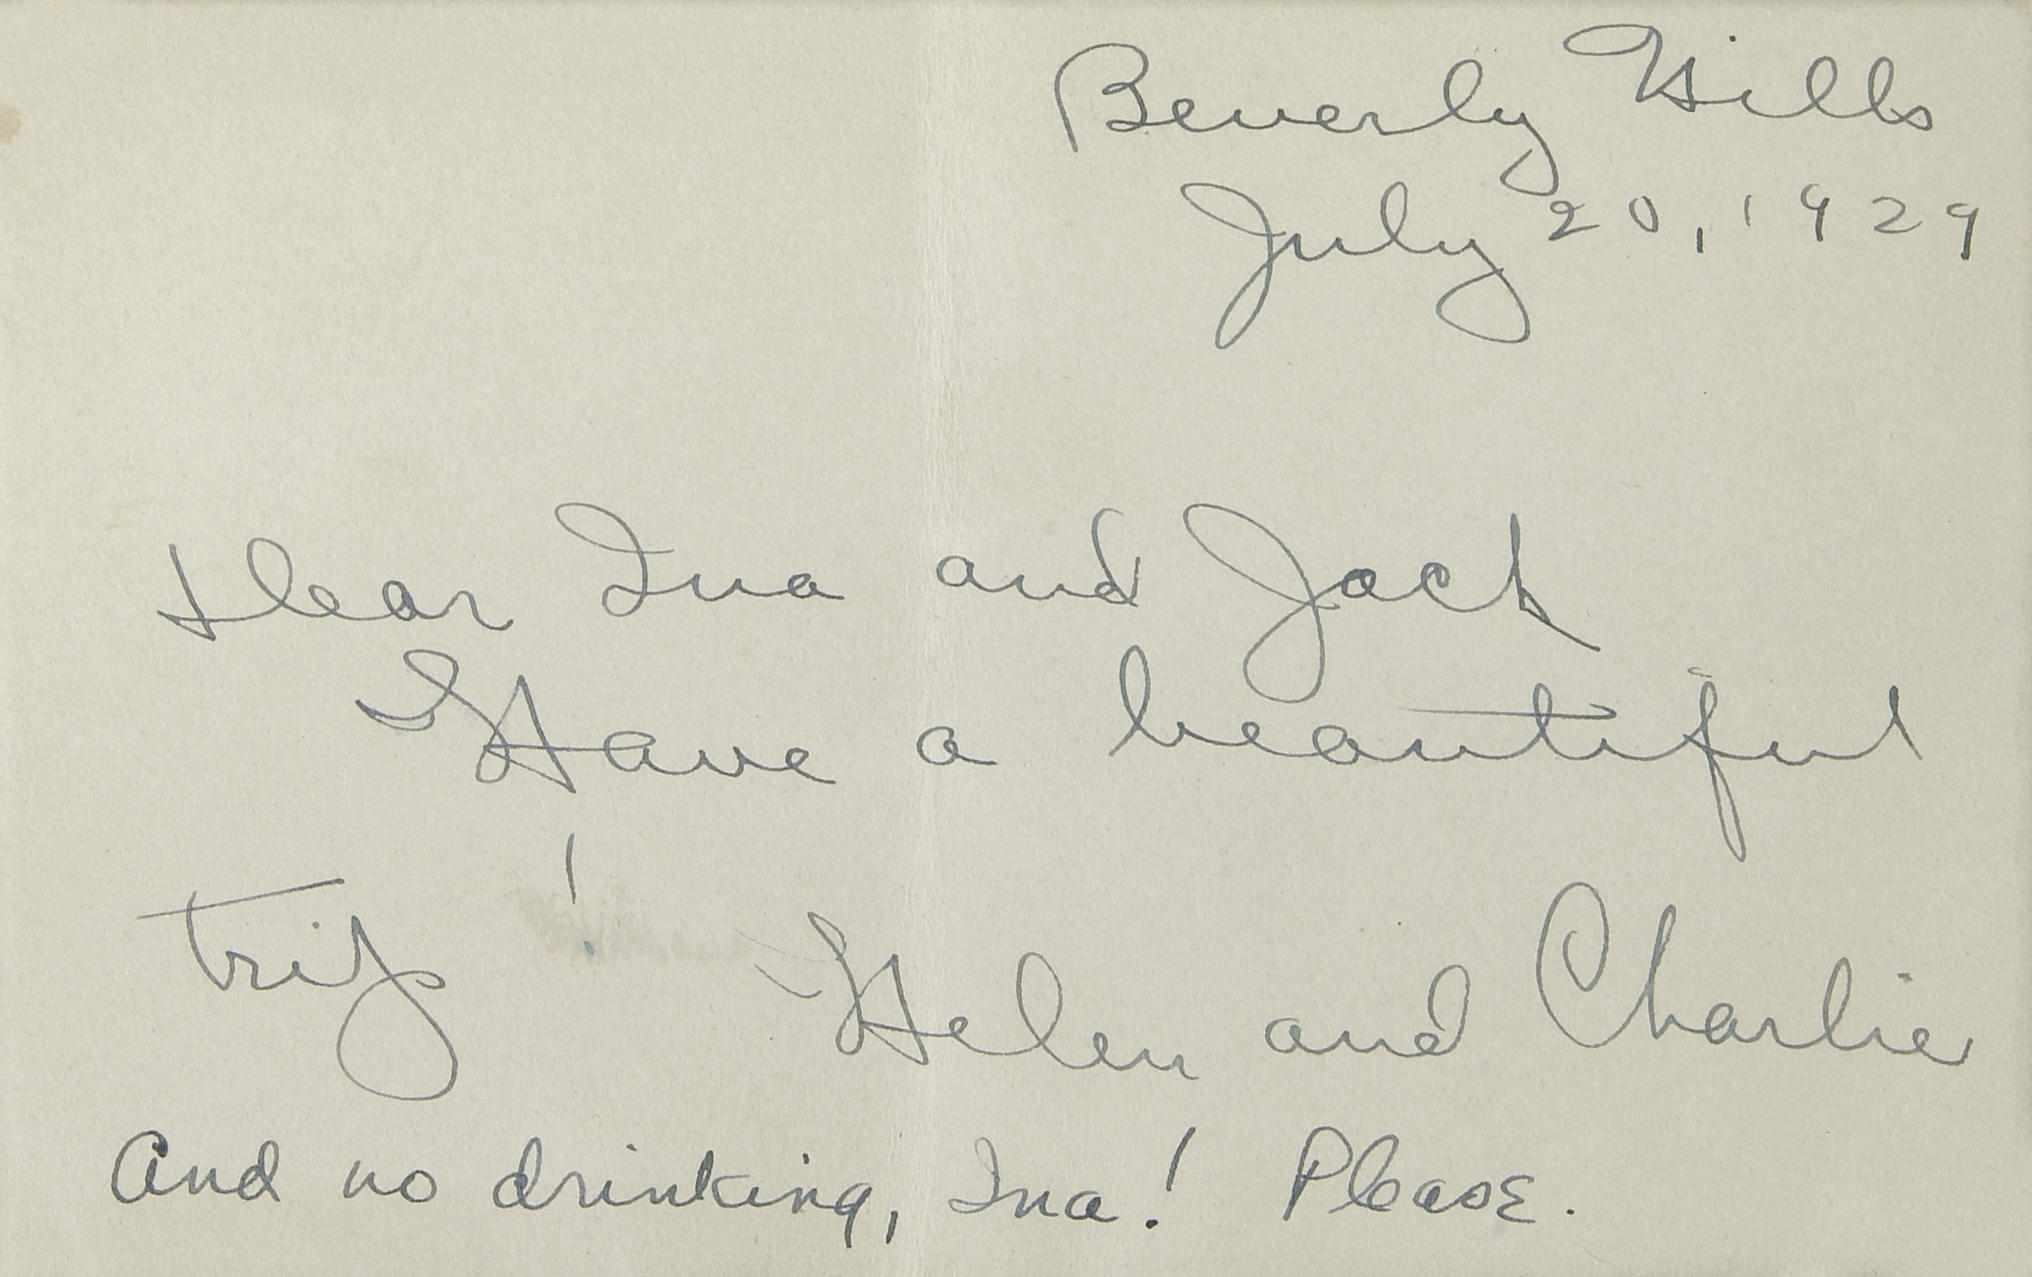 Beverly Hills
July 20, 1929
Dear Ina and Jack
Have a beautiful
trip! Helen and Charlie
And no drinking, Ina! Please.